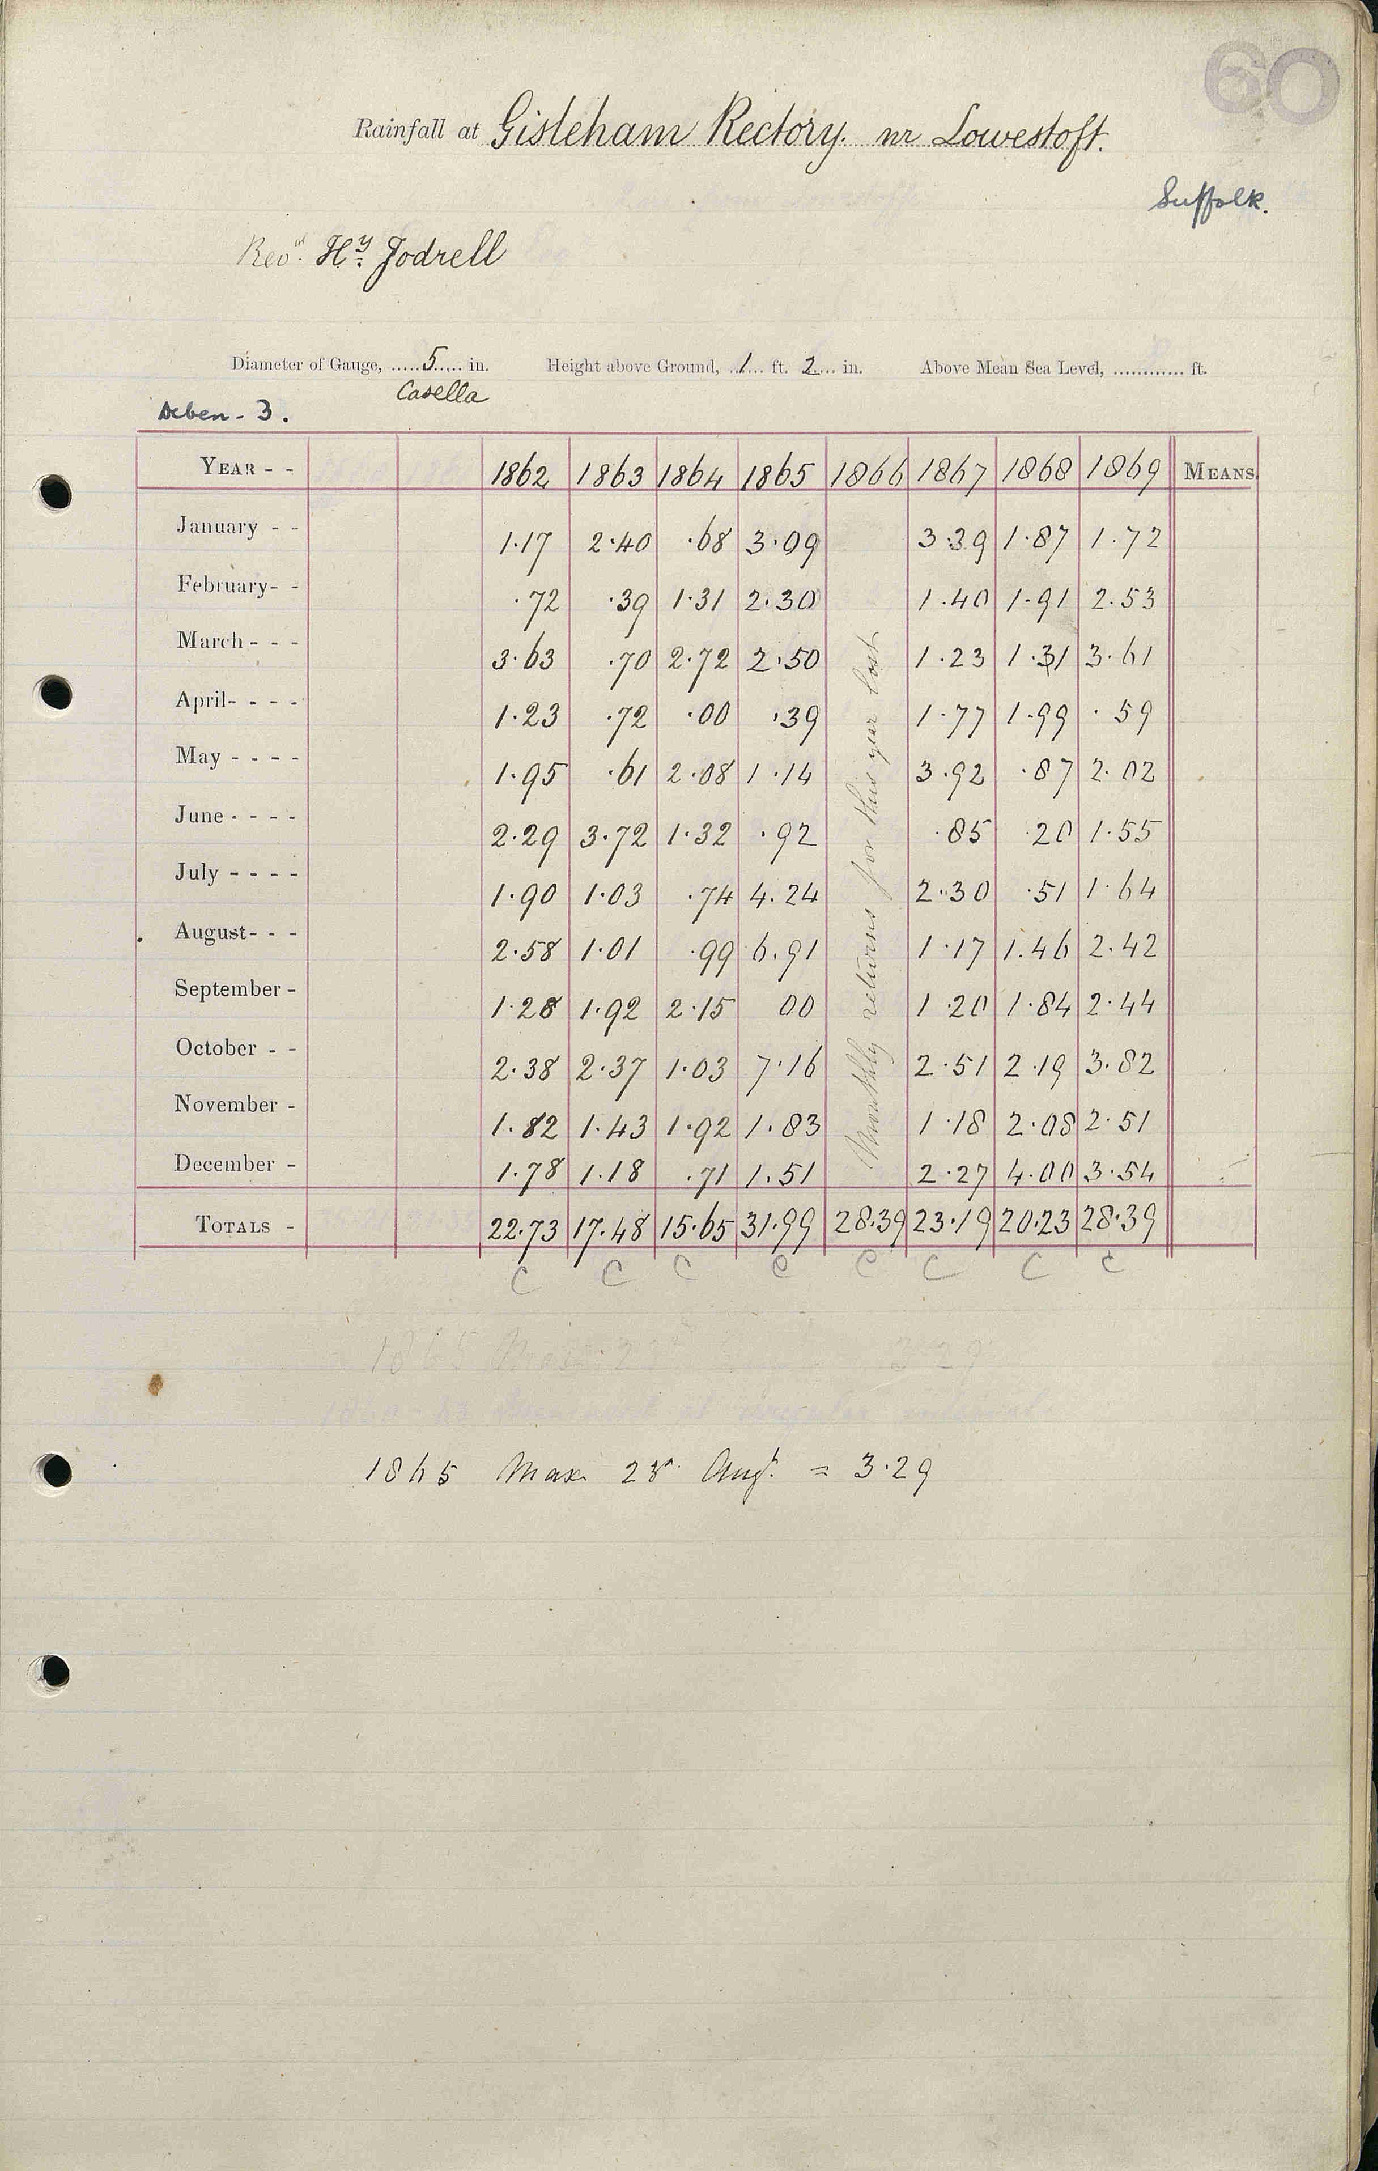 60
Rainfall at Gisleham Rectory. nr Lowestoft.
Suffolk.
Revd. Hy. Jodrell
Diameter of Gauge, ......5...... in. Height above Ground, ..1.... ft. 2.... in. Above Mean Sea Level, ............ ft.
Casella
Deben - 3.
YEAR - - 1862 1863 1864 1865 1866 1867 1868 1869 MEANS.
January - - 1.17 2.40 .68 3.09 3.39 1.87 1.72
February- - .72 .39 1.31 2.30 1.40 1.91 2.53
March - - - 3.63 .70 2.72 2.50 1.23 1.31 3.61
April- - - - 1.23 .72 .00 .39 1.77 1.99 .59
May - - - - 1.95 .61 2.08 1.14 3.92 .87 2.02
June - - - - 2.29 3.72 1.32 .92 .85 .20 1.55
July - - - - 1.90 1.03 .74 4.24 2.30 .51 1.64
August- - - 2.58 1.01 .99 6.91 1.17 1.46 2.42
September - 1.28 1.92 2.15 00 1.20 1.84 2.44
October - - 2.38 2.37 1.03 7.16 2.51 2.19 3.82
November - 1.82 1.43 1.92 1.83 1.18 2.08 2.51
December - 1.78 1.18 .71 1.51 2.27 4.00 3.54
Monthly returns for this year lost
TOTALS - 22.73 17.48 15.65 31.99 28.39 23.19 20.23 28.39
C C C C C C C C
1865 Max Augt. = 3.29